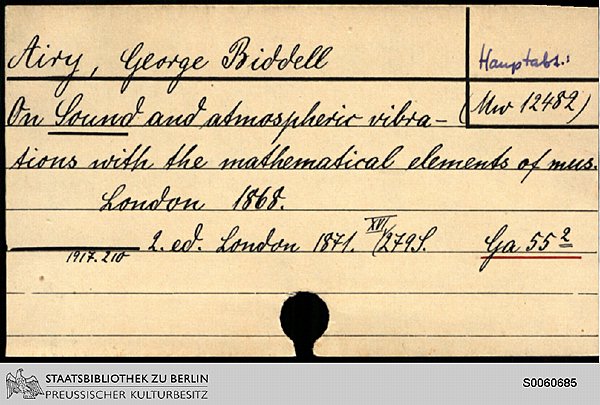 Airy, George Biddell
Hauptabt.:
On Sound and atmospheric vibra-
(Mw 12482)
tions with the mathematical elements of mus.
London 1868.
2. ed. London 1871. XVI, 279 S.
Ga 55²
1917.210
STAATSBIBLIOTHEK ZU BERLIN
PREUSSISCHER KULTURBESITZ
S0060685